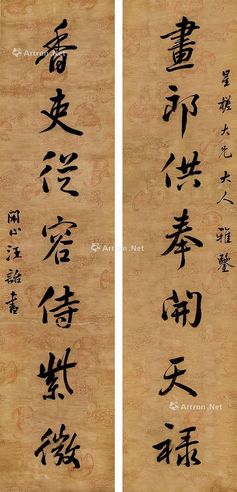 星槎大兄大人雅鑒
畫郎供奉開天祿
香吏從容侍紫微
閑心汪詒書
Artron.Net
Artron.Net
Artron.Net
Artron.Net